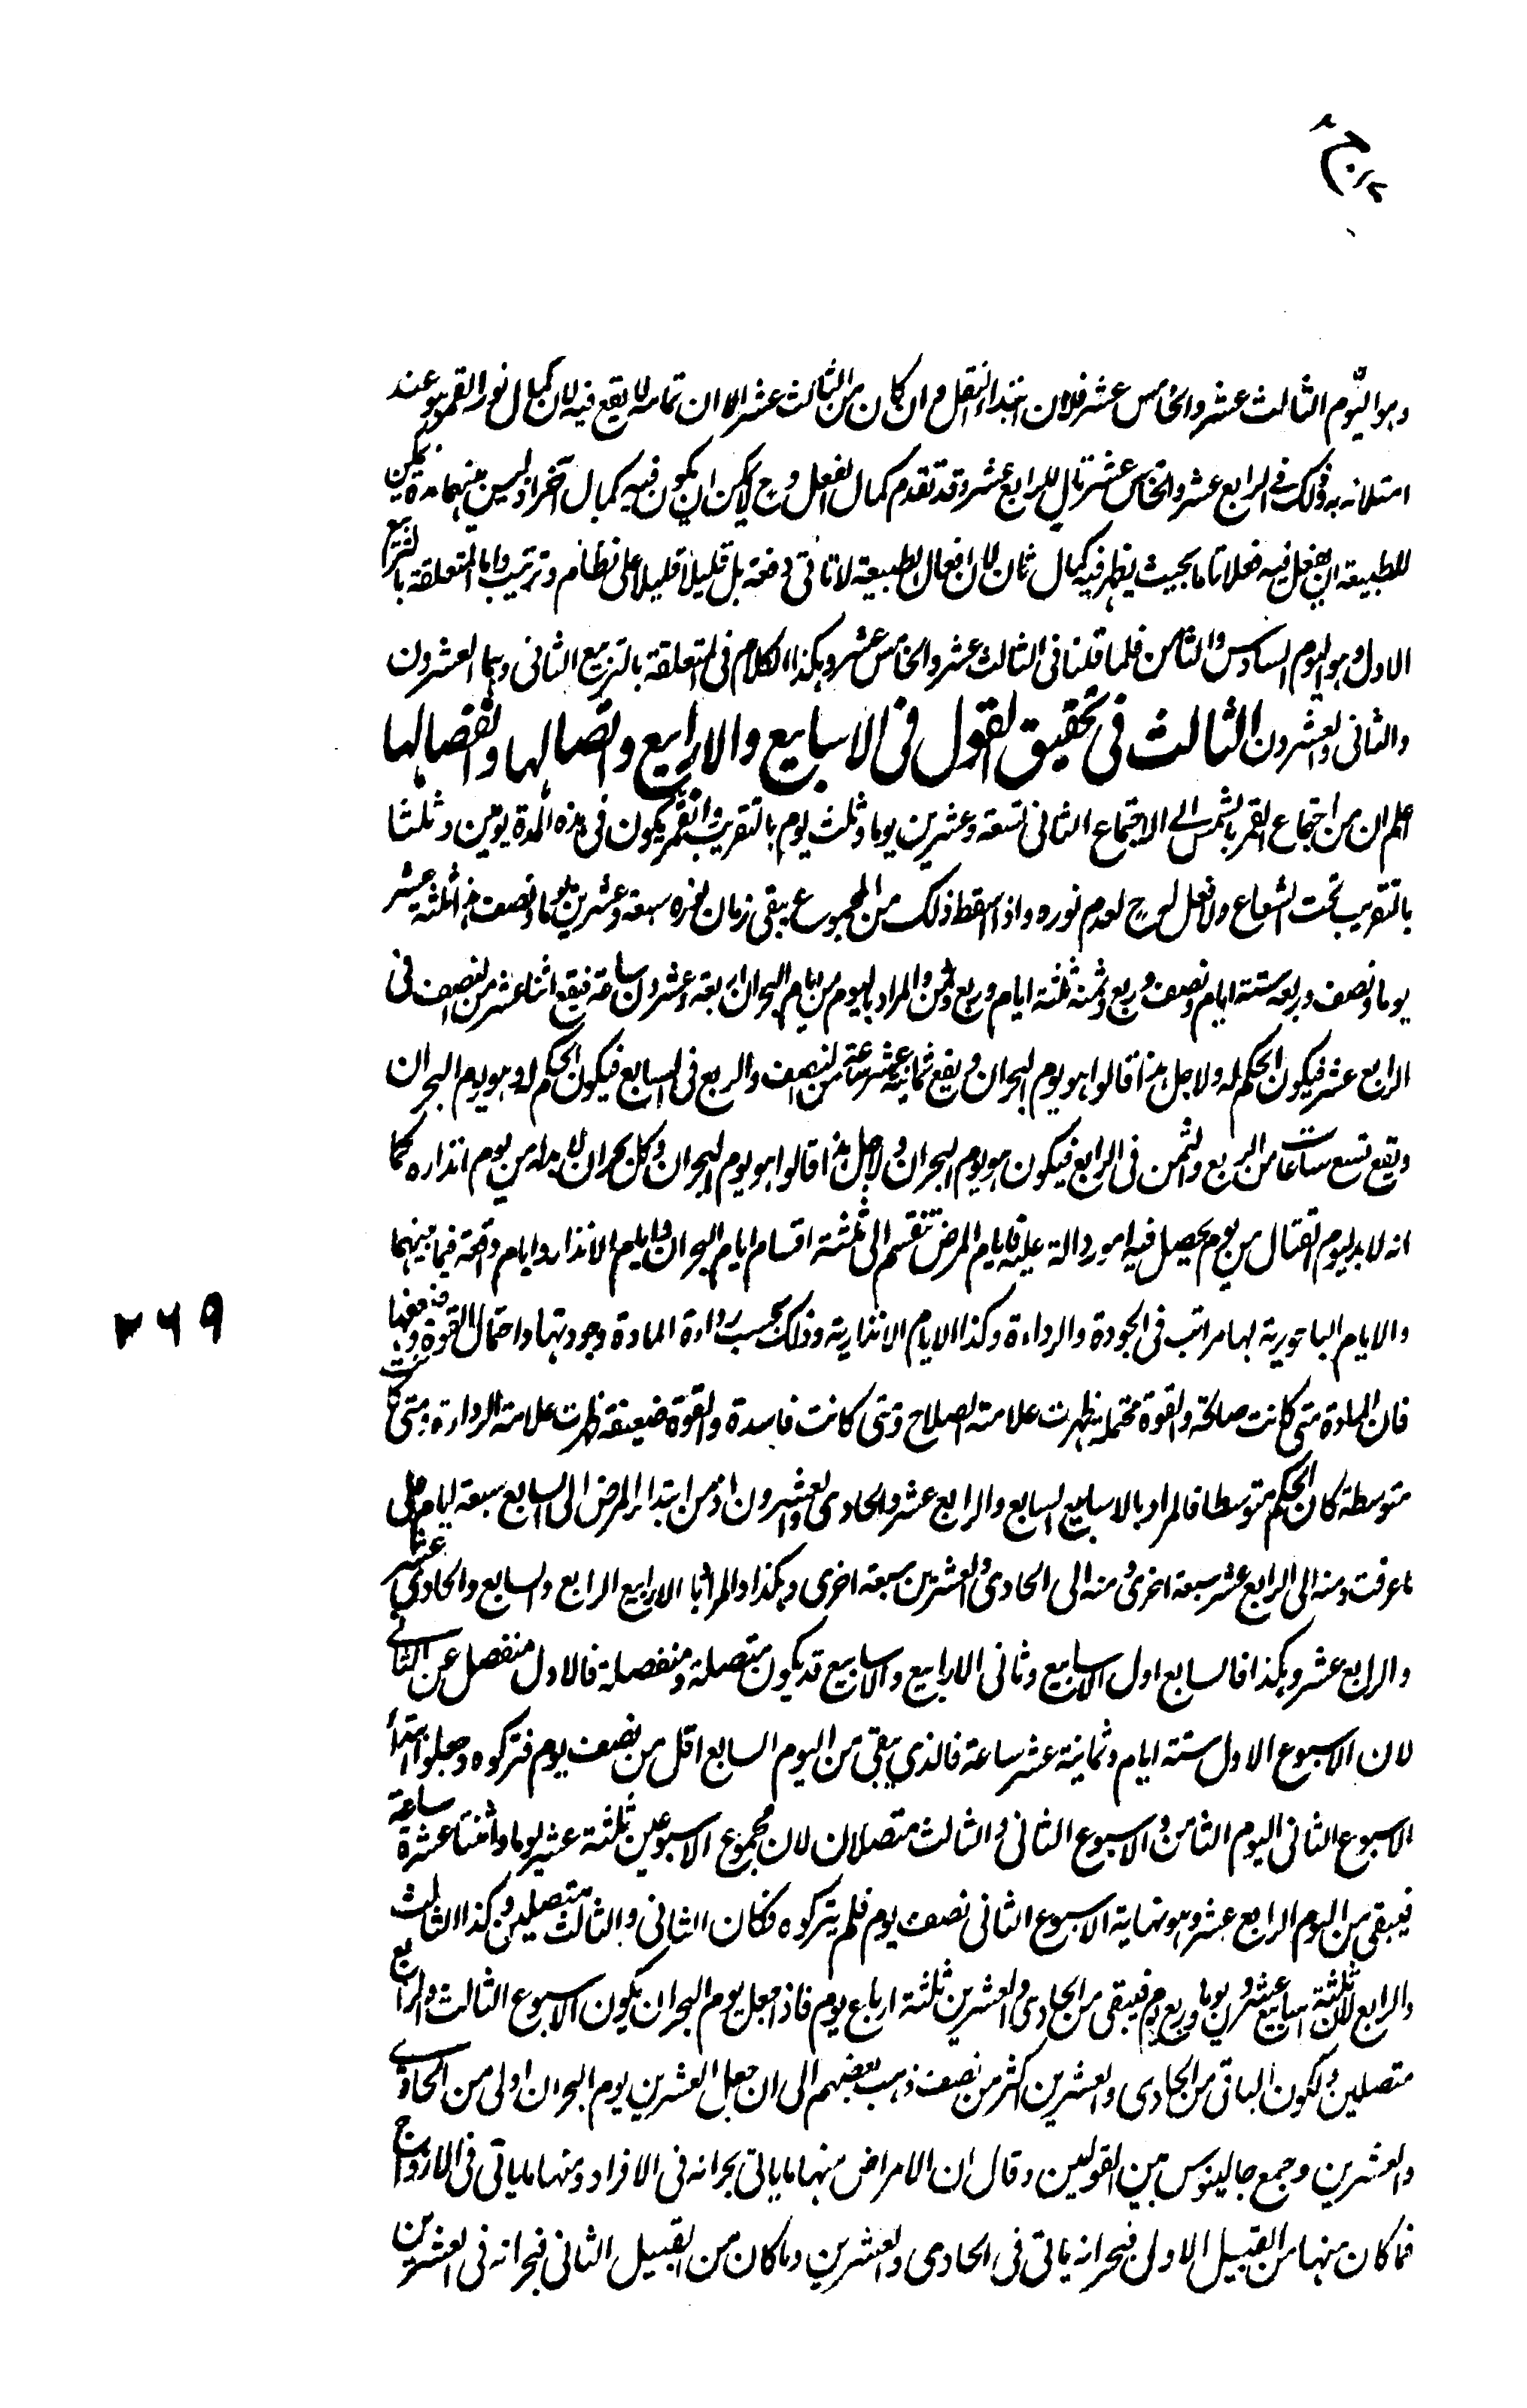 وهو اليوم الثالث عشر والخامس عشر فلان ابتداء النقل وان كان من الثالث عشر الا ان تمامه لا يقع فيه لان كمال نور القمر هو عند
امتلائه به وذلك في الرابع عشر والخامس عشر تال للرابع عشر وقد تقدم كمال الفعل وح لا يمكن ان يكون فيه كمال آخر اذ ليس بينهما مدة يمكن
للطبيعة ان تفعل فيه فعلا تاما بحيث يظهر فيه كمال ثان لان افعال الطبيعة لا تاتى دفعة بل قليلا قليلا على نظام وترتيب واما المتعلقة بالتربيع
الاول وهو اليوم السادس والثامن فلما قلنا فى الثالث عشر والخامس عشر وهكذا الكلام فى المتعلقة بالتربيع الثانى وهما العشرون
والثانى والعشرون الثالث فى تحقيق القول فى الاسابيع والارابيع واتصالها وانفصالها
اعلم ان من اجتماع القمر بالشمس الى الاجتماع الثانى تسعة وعشرين يوما وثلث يوم بالتقريب والقمر يكون فى هذه المدة يومين وثلثا
بالتقريب تحت الشعاع ولا فعل له ح لعدم نوره واذا اسقط ذلك من المجموع يبقى زمان نوره سبعة وعشرين يوما ونصفه ثلثة عشر
يوما ونصف وربعه ستة ايام ونصف وربع وثمنه ثلثة ايام وربع وثمن والمراد باليوم من ايام البحران اربعة وعشرون ساعة فيقع اثنا عشر من النصف فى
الرابع عشر فيكون الحكم له ولاجل هذا قالوا هو يوم البحران ويقع ثمانية عشر ساعة من النصف والربع فى السابع فيكون الحكم له وهو يوم البحران
ويقع تسع ساعات من الربع والثمن فى الرابع فيكون هو يوم البحران ولاجل هذا قالوا هو يوم البحران وكل بحران لا بد له من يوم انذاره كما
انه لا بد ليوم القتال من يوم يحصل فيه امور دالة عليه فايام المرض تنقسم الى ثلثة اقسام ايام البحران وايام الانذار وايام واقعة فيما بينهما
والايام الباحورية لها مراتب فى الجودة والرداءة وكذا الايام الانذارية وذلك بحسب رداءة المادة وجودتها واحتمال القوة وضعفها
فان المادة متى كانت صالحة والقوة محتملة ظهرت علامة الصلاح ومتى كانت فاسدة والقوة ضعيفة ظهرت علامة الرداءة ومتى كانت
متوسطة كان الحكم متوسطا فالمراد بالاسابيع السابع والرابع عشر والحادى والعشرون اذ من ابتداء المرض الى السابع سبعة ايام على
ما عرفت ومنه الى الرابع عشر سبعة اخرى ومنه الى الحادى والعشرين سبعة اخرى وهكذا والمراد بالارابيع الرابع والسابع والحادى عشر
والرابع عشر وهكذا فالسابع اول الاسابيع وثانى الارابيع والاسابيع قد يكون متصلة ومنفصلة فالاول منفصل عن الثانى
لان الاسبوع الاول ستة ايام وثمانية عشر ساعة فالذى يبقى من اليوم السابع اقل من نصف يوم فتركوه وجعلوا ابتداء
الاسبوع الثانى اليوم الثامن والاسبوع الثانى والثالث متصلان لان مجموع الاسبوعين ثلثة عشر يوما واثنتا عشرة ساعة
فيبقى من اليوم الرابع عشر وهو نهاية الاسبوع الثانى نصف يوم فلم يتركوه فكان الثانى والثالث متصلين وكذا الثالث
والرابع لان ثلثة اسابيع عشرون يوما وربع يوم فيبقى من الحادى والعشرين ثلثة ارباع يوم فاذا جعل يوم البحران يكون الاسبوع الثالث والرابع
متصلين ولكون الباقى من الحادى والعشرين اكثر من نصف ذهب بعضهم الى ان جعل العشرين يوم البحران اولى من الحادى
والعشرين وجمع جالينوس بين القولين وقال ان الامراض منها ما ياتى بحرانه فى الافراد ومنها ما ياتى فى الازواج
فما كان منها من القبيل الاول فبحرانه ياتى فى الحادى والعشرين وما كان من القبيل الثانى فبحرانه فى العشرين
۲۶۹